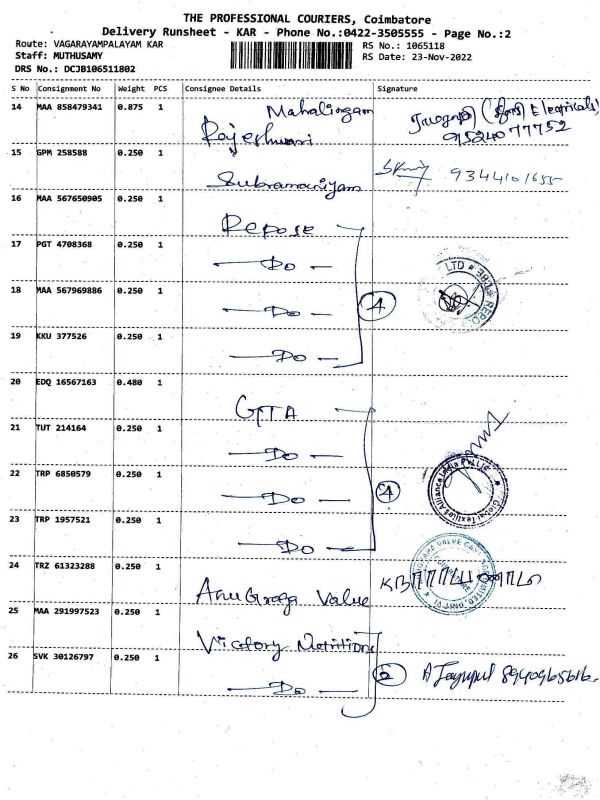 THE PROFESSIONAL COURIERS, Coimbatore
Delivery Runsheet - KAR - Phone No.:0422-3505555 - Page No.:2
Route: VAGARAYAMPALAYAM KAR
RS No.: 1065118
Staff: MUTHUSAMY
RS Date: 23-Nov-2022
DRS No.: DCJB106511802
S No Consignment No Weight PCS Consignee Details Signature
14 MAA 858479341 0.875 1 Mahalingam
Rajeshwari 9524077752
15 GPM 258588 0.250 1
Subramaniyam 9344101655
16 MAA 567650905 0.250 1
Repose
17 PGT 4708368 0.250 1
— Do —
18 MAA 567969886 0.250 1
— Do — 4
19 KKU 377526 0.250 1
— Do —
20 EDQ 16567163 0.480 1
GTTA
21 TUT 214164 0.250 1
— Do —
22 TRP 6850579 0.250 1
— Do — 4
23 TRP 1957521 0.250 1
— Do —
24 TRZ 61323288 0.250 1
Anugraga Value
25 MAA 291997523 0.250 1
Victory Nutritions
26 SVK 30126797 0.250 1
— Do — 2